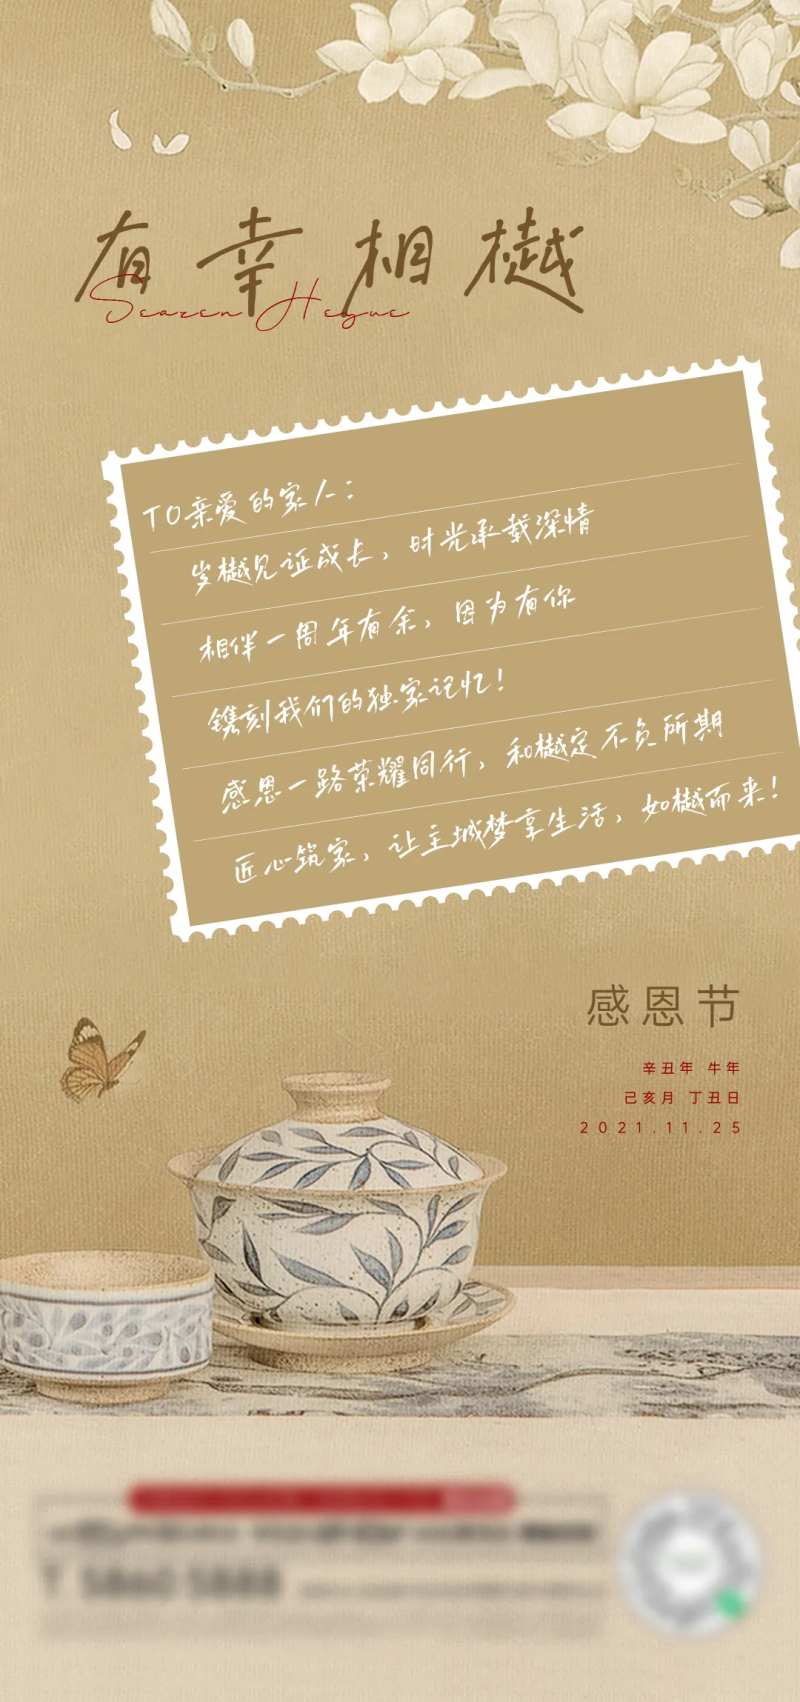 有幸相樾
Seazen Hegue
TO亲爱的家人：
岁樾见证成长，时光承载深情
相伴一周年有余，因为有你
镌刻我们的独家记忆！
感恩一路荣耀同行，和樾定不负所期
匠心筑家，让主城梦享生活，如樾而来！
感恩节
辛丑年 牛年
己亥月 丁丑日
2021.11.25